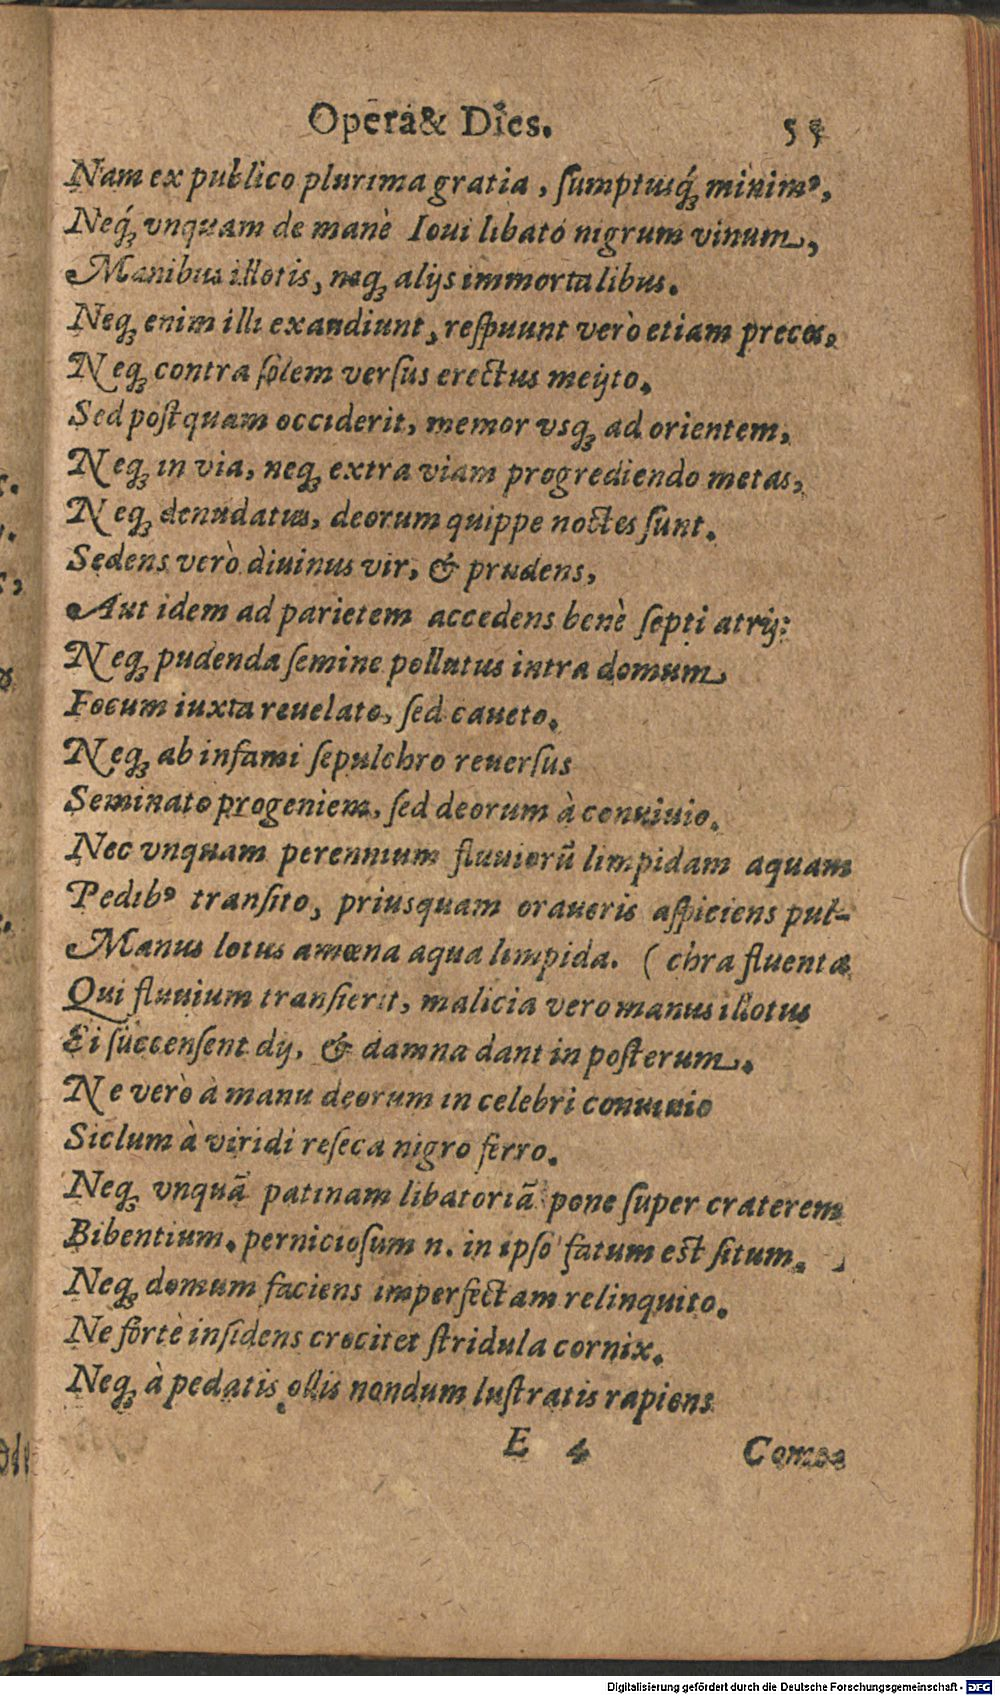 Opera & Dies. 55
Nam ex publico plurima gratia, ſumptuiq́ꝫ minimꝰ,
Neq́ꝫ vnquam de manè Ioui libato nigrum vinum,
Manibus illotis, neqꝫ alijs immortalibus.
Neqꝫ enim illi exaudiunt, reſpuunt verò etiam preces.
Neqꝫ contra ſolem verſus erectus meijto.
Sed poſtquam occiderit, memor vsqꝫ ad orientem,
Neqꝫ in via, neqꝫ extra viam progrediendo metas,
Neqꝫ denudatus, deorum quippe noctes ſunt.
Sedens verò diuinus vir, & prudens,
Aut idem ad parietem accedens benè ſepti atrij:
Neqꝫ pudenda ſemine pollutus intra domum
Focum iuxta reuelato, ſed caueto.
Neqꝫ ab infami ſepulchro reuerſus
Seminato progeniem, ſed deorum à conuiuio.
Nec vnquam perennium fluuiorū limpidam aquam
Pedibꝰ tranſito, priusquam oraueris aſpiciens pul-
Manus lotus amœna aqua limpida. ( chra fluenta
Qui fluuium tranſierit, malicia vero manus illotus
Ei ſuccenſent dij, & damna dant in poſterum.
Ne verò à manu deorum in celebri conuiuio
Siclum à viridi reſeca nigro ferro.
Neqꝫ vnquā patinam libatoriā pone ſuper craterem
Bibentium. pernicioſum n. in ipſo fatum eſt ſitum.
Neqꝫ domum faciens imperfectam relinquito.
Ne fortè inſidens crocitet ſtridula cornix.
Neqꝫ à pedatis ollis nondum luſtratis rapiens
E 4
Digitalisierung gefördert durch die Deutsche Forschungsgemeinschaft - DFG